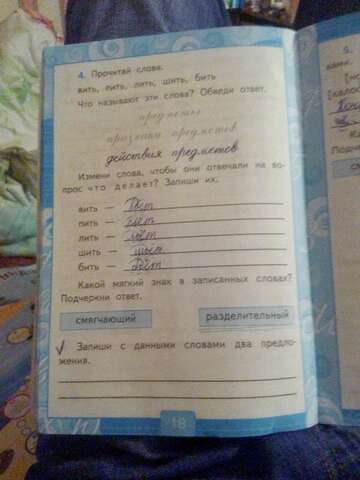 4. Прочитай слова.
вить, пить, лить, шить, бить
Что называют эти слова? Обведи ответ.
предметы
признаки предметов
действия предметов
Измени слова, чтобы они отвечали на во-
прос что делает? Запиши их.
вить — вьёт
пить — пьёт
лить — льёт
шить — шьёт
бить — бьёт
Какой мягкий знак в записанных словах?
Подчеркни ответ.
смягчающий
разделительный
Запиши с данными словами два предло-
жения.
18
9.
вами.